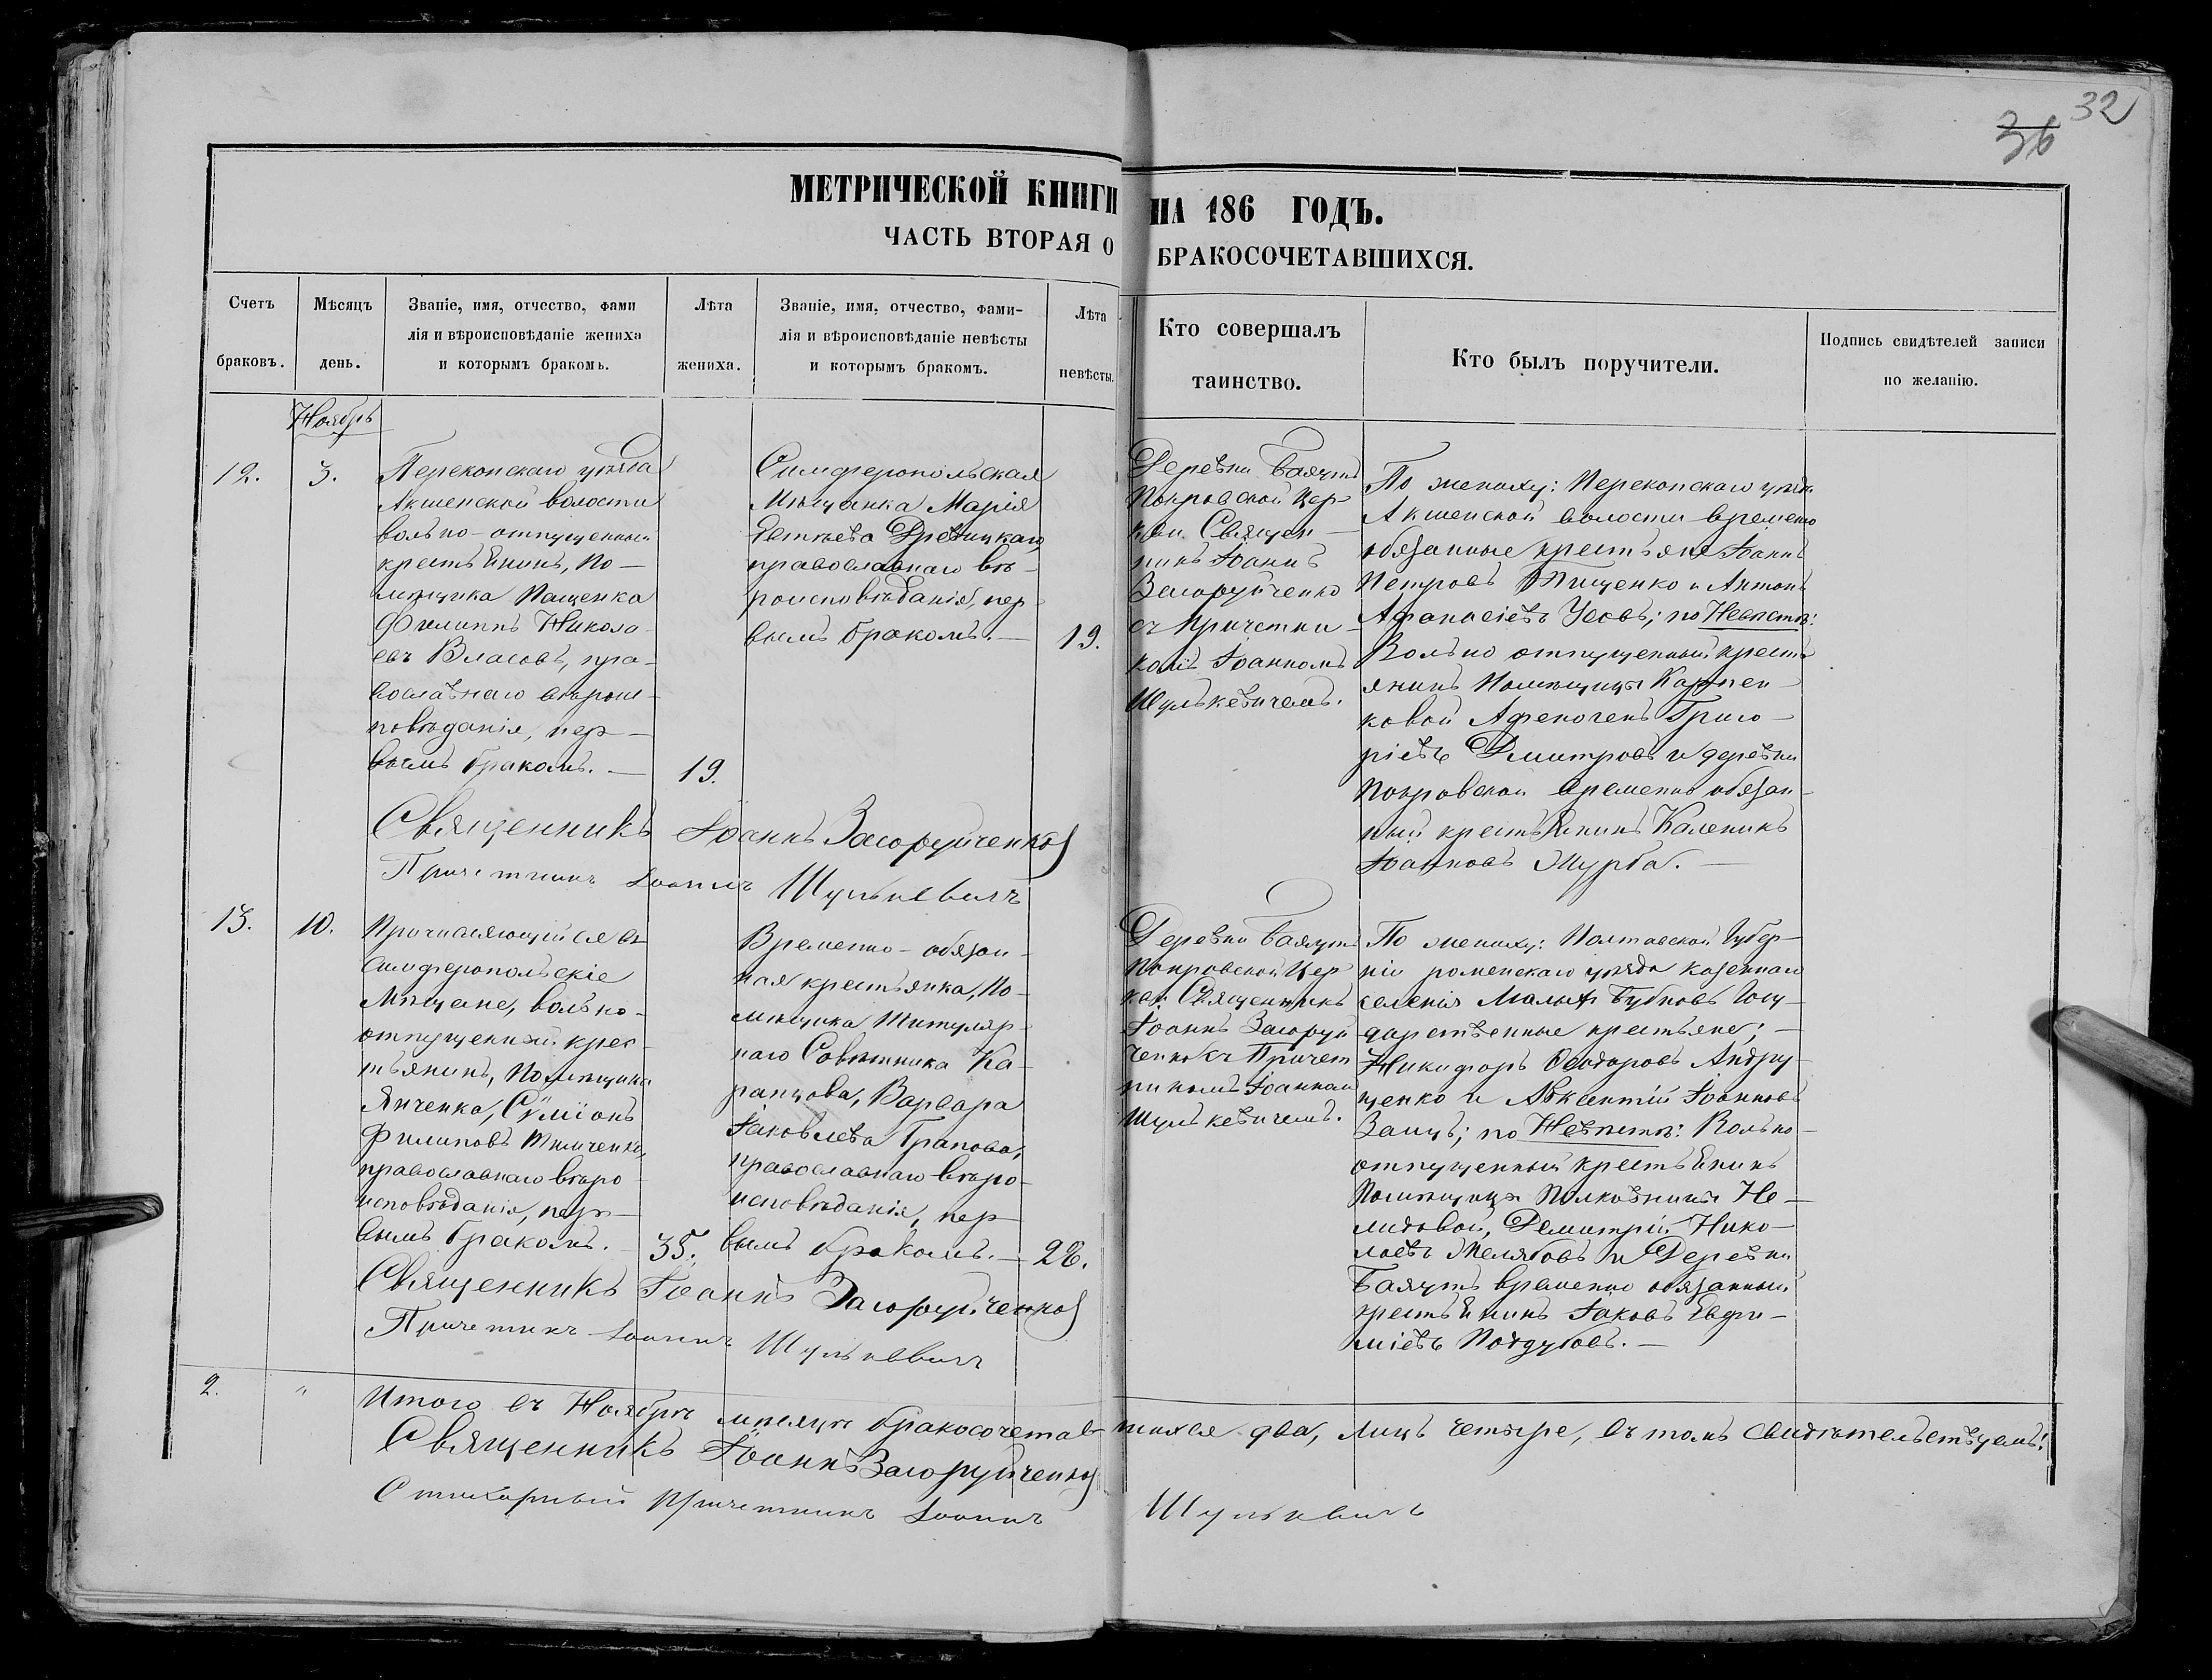 32
36
МЕТРИЧЕСКОЙ КНИГИ НА 186 ГОДЪ.
ЧАСТЬ ВТОРАЯ О БРАКОСОЧЕТАВШИХСЯ.
Счетъ
браковъ.
Мѣсяцъ
день.
Званіе, имя, отчество, фами
лія и вѣроисповѣданіе жениха
и которымъ бракомъ.
Лѣта
жениха.
Званіе, имя, отчество, фами-
лія и вѣроисповѣданіе невѣсты
и которымъ бракомъ.
Лѣта
невѣсты.
Кто совершалъ
таинство.
Кто былъ поручители.
Подпись свидѣтелей записи
по желанію.
Ноябрь
12.
3.
Перекопскаго уѣзда
Акшенской волости
вольно-отпущенный
крестьянинъ, По-
мѣщика Пащенка
Филиппъ Никола
евъ Власовъ, пра-
вославнаго вѣроис-
повѣданія, пер-
вымъ бракомъ. —
19.
Симферопольская
Мѣщанка Марія
православнаго вѣ-
роисповѣданія, пер-
вымъ бракомъ. —
19.
Деревни Баячутъ
Покровской Цер-
кви Священ-
никъ Іоаннъ
Загоруйченко
съ Причетни-
комъ Іоанномъ
Шулькевичемъ.
По жениху: Перекопскаго уѣзда
Акшенской волости временно
обязанные крестьяне Іоаннъ
Петровъ Тищенко и Антонъ
Афанасіевъ Усовъ; по Невѣстѣ:
Вольно отпущенный кресть
янинъ Помѣщицы Карпен-
ковой Афеногенъ Григо-
ріевъ Дмитровъ и деревни
Покровской временно обязан-
ный крестьянинъ Каленикъ
Іоанновъ Журба. —
Священникъ Іоаннъ Загоруйченко
Причетникъ Іоаннъ Шулькевичъ
13.
10.
Причисляющійся въ
Симферопольскіе
Мѣщане, вольно-
отпущенный крес-
тьянинъ, Помѣщика
Янченка, Сѵмеонъ
Филиповъ Тимченко,
православнаго вѣро
исповѣданія, пер-
вымъ бракомъ. —
35.
Временно-обязан-
ная крестьянка, По-
мѣщика Титуляр-
наго Совѣтника Ка-
ранцова, Варвара
Іаковлева Грапова,
православнаго вѣро-
исповѣданія, пер-
вымъ бракомъ. —
26.
Деревни Баячутъ
Покровской Цер
кви Священникъ
Іоаннъ Загоруй
ченко съ Причет
никомъ Іоанномъ
Шулькевичемъ.
По жениху: Полтавской Губер-
ніи роменскаго уѣзда казеннаго
селенія Малыхъ Бубновъ Госу-
дарственные крестьяне; —
Никифоръ Ѳеодоровъ Андру-
щенко и Авксентій Іоанновъ
Заицъ; по Невѣстѣ: Вольно-
отпущенный крестьянинъ
Помѣщицы Полковницы Не-
лидовой, Димитрій Нико-
лаевъ Желябовъ и Деревни
Баячутъ временно обязанный
крестьянинъ Іаковъ Евфи-
міевъ Поддубовъ. —
Священникъ Іоаннъ Загоруйченко
Причетникъ Іоаннъ Шулькевичъ
2.
"
Итого въ Ноябрѣ мѣсяцѣ бракосочетавшихся два, лицъ четыре, въ томъ свидѣтельствуемъ:
Священникъ Іоаннъ Загоруйченко
Стихарный Причетникъ Іоаннъ Шулькевичъ